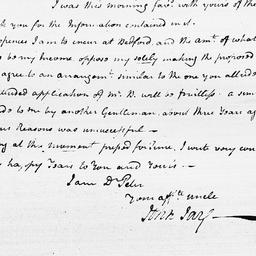 I was this morning fav.d with yours of the
k you for the Information contained in it.
xpences I am to incur at Bedford, and the am.t of what
s to be my Income oppose my solely making the proposed
agree to an arrangem.t similar to the one you alluded
ended application of Mr. B. will be fruitless. a sim
de to me by another Gentleman about three Years ag
us Reasons was unsuccessful —
g at this moment pressed for time. I write very con
y happy Years to You and Yours —
I am D.r Peter
Your aff.te Uncle
John Jay